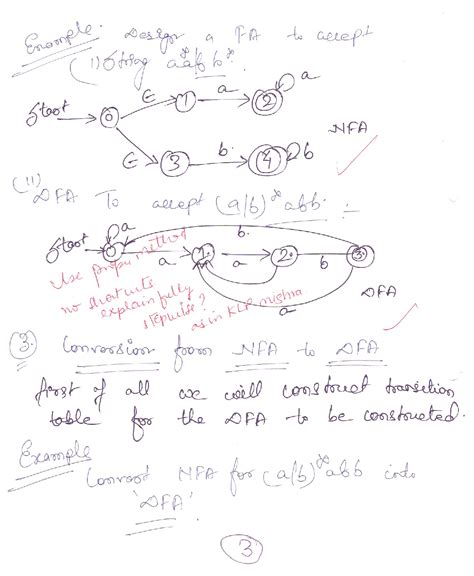 Example. Design a FA to accept
(i) String aa*/b b*.
Start 0 ε 1 a 2 a
NFA
ε 3 b 4 b
(ii)
DFA To accept (a/b)* abb. :-
a b.
Start 0 a 1. a 2. b 3.
Use proper method
no shortcuts
explain fully
stepwise?
as in KLP mishra
a
DFA
3. Conversion from NFA to DFA
first of all we will construct transition
table for the DFA to be constructed.
Example
Convert NFA for (a/b)* abb into
'DFA'.
3